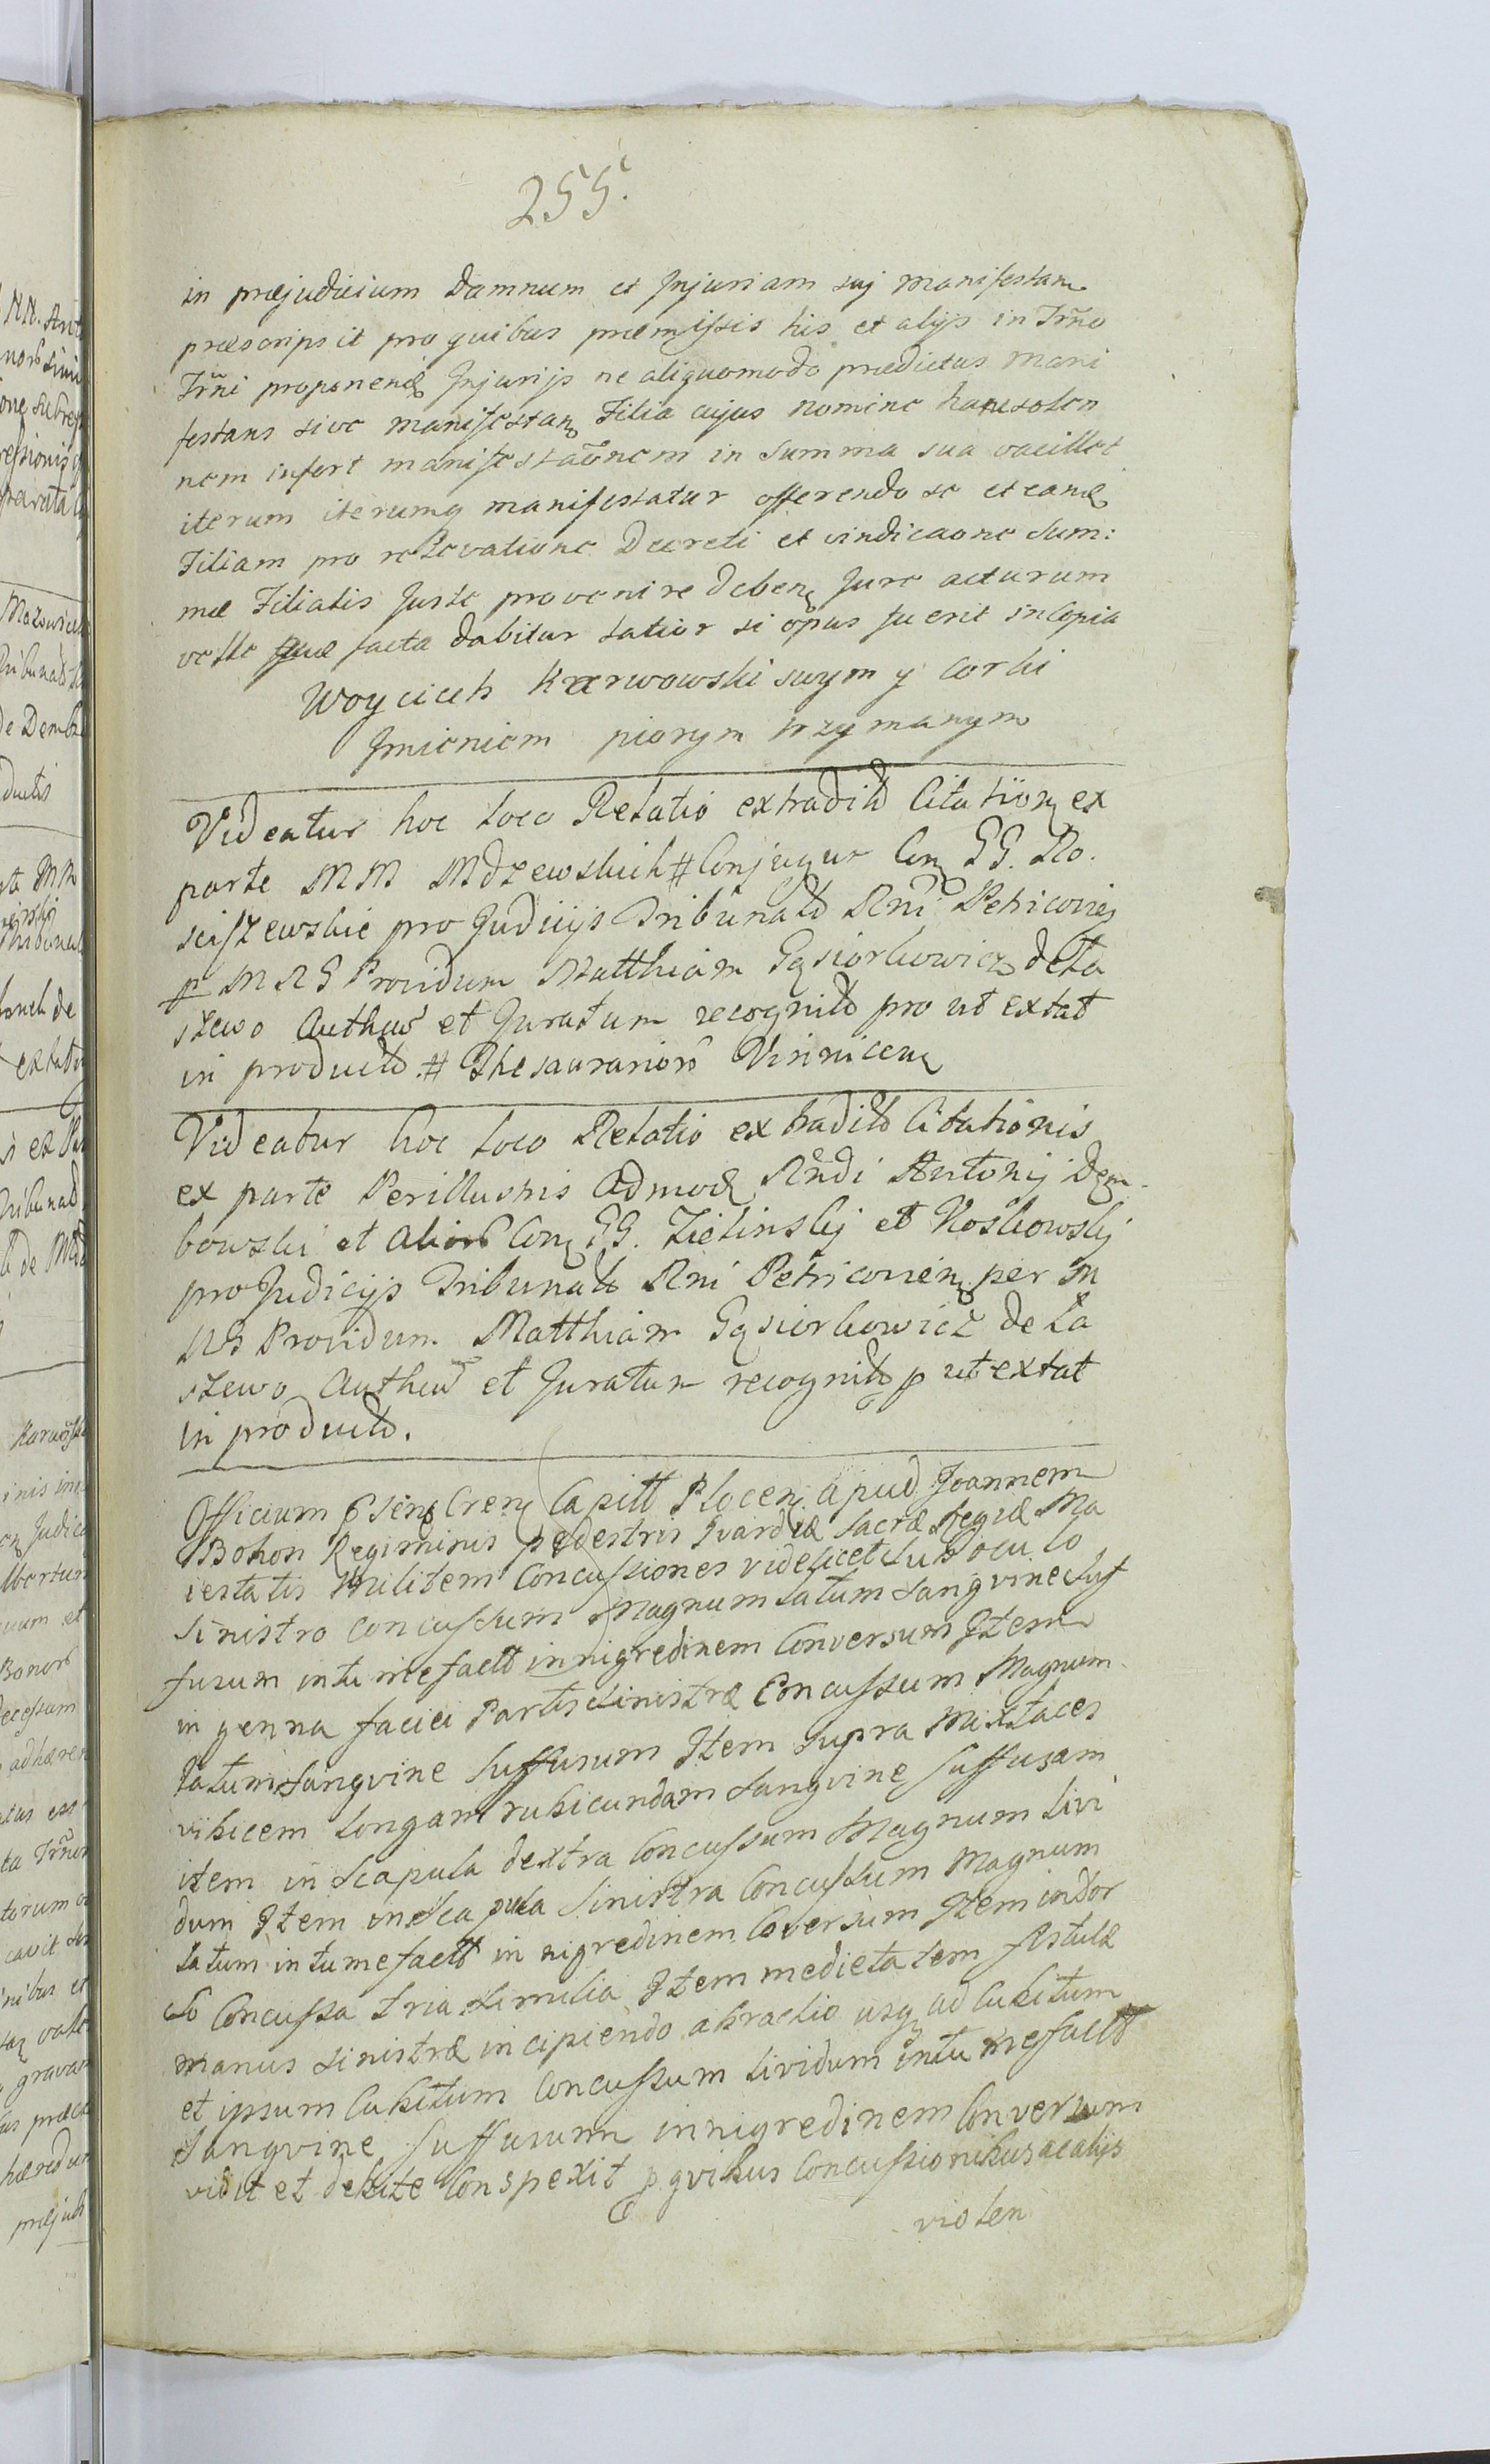 255.
in præjudicium Damnum et Injuriam suj manifestan
præscripsit pro quibus præmissis his et alijs in Trño
Trñi proponend Injurijs ne aliquomodo prædictus mani
festans sive manifestan Filia cujus nomine hanc solen
nem infert manifestaõnem in Summa sua vacillet
iterum iterumq manifestatur offerendo se et eand
Filiam pro relevatione Decreti et vindicaone Sum:
mæ Filialis Juste provenire deben Jure acturum
velle quæ facta dabitur latior si opus fuerit in Copia
Woyciech Karwowski swym y Corki
Jmieniem piorym trzymanym
Videatur hoc loco Relatio extradit Citation ex
parte MM Mdzewskich # Conjugum Con GG. Ro.
sciszewskie pro Judicijs Tribunalt Rni Petricovien
p MRG Providum Matthiam Gąsiorkowicz de La
szewo Authen et Juratum recognit pro ut extat
in producto. # Thesaurarior Vinnicen
Videatur hoc loco Relatio extradit Citationis
ex parte Perillustris Admod Rñdi Antonij Dem
bowski et alior Con GG. Zielinskj et Koskowskj
pro Judicijs Tribunalt Rni Petricovien per M
RG Providum Matthiam Gąsiorkowicz de La
szewo Authen et Juratum recognit p ut extat
in producto.
Officium Psens Cren Capitt Plocen apud Joannem
Bohon Regiminis pedestris Gvardiæ Sacræ Regiæ Ma
iestatis Militem Concussiones videlicet sub oculo
Sinistro concussum Magnum latum Sangvine suf
fusum intumefact in nigredinem Conversum Item
in genna faciei Partis Sinistræ Concussum Magnum
latum Sangvine Suffusum Item supra Mixtaces
vibicem longam rubicundam Sangvine Suffusam
item in Scapula dextra Concussum Magnum livi
dum Item in Scapula Sinistra Concussum Magnum
latum intumefact in nigredinem Coversum Item in dor
so Concussa tria Similia Item medietatem fistulæ
manus sinistræ incipiendo a brachio usq ad Cubitum
et ipsum Cubitum Concussum lividum intumefact
Sangvine Suffusum in nigredinem Conversum
vidit et debite Conspexit p qvibus Concussionibus ac alijs
violen